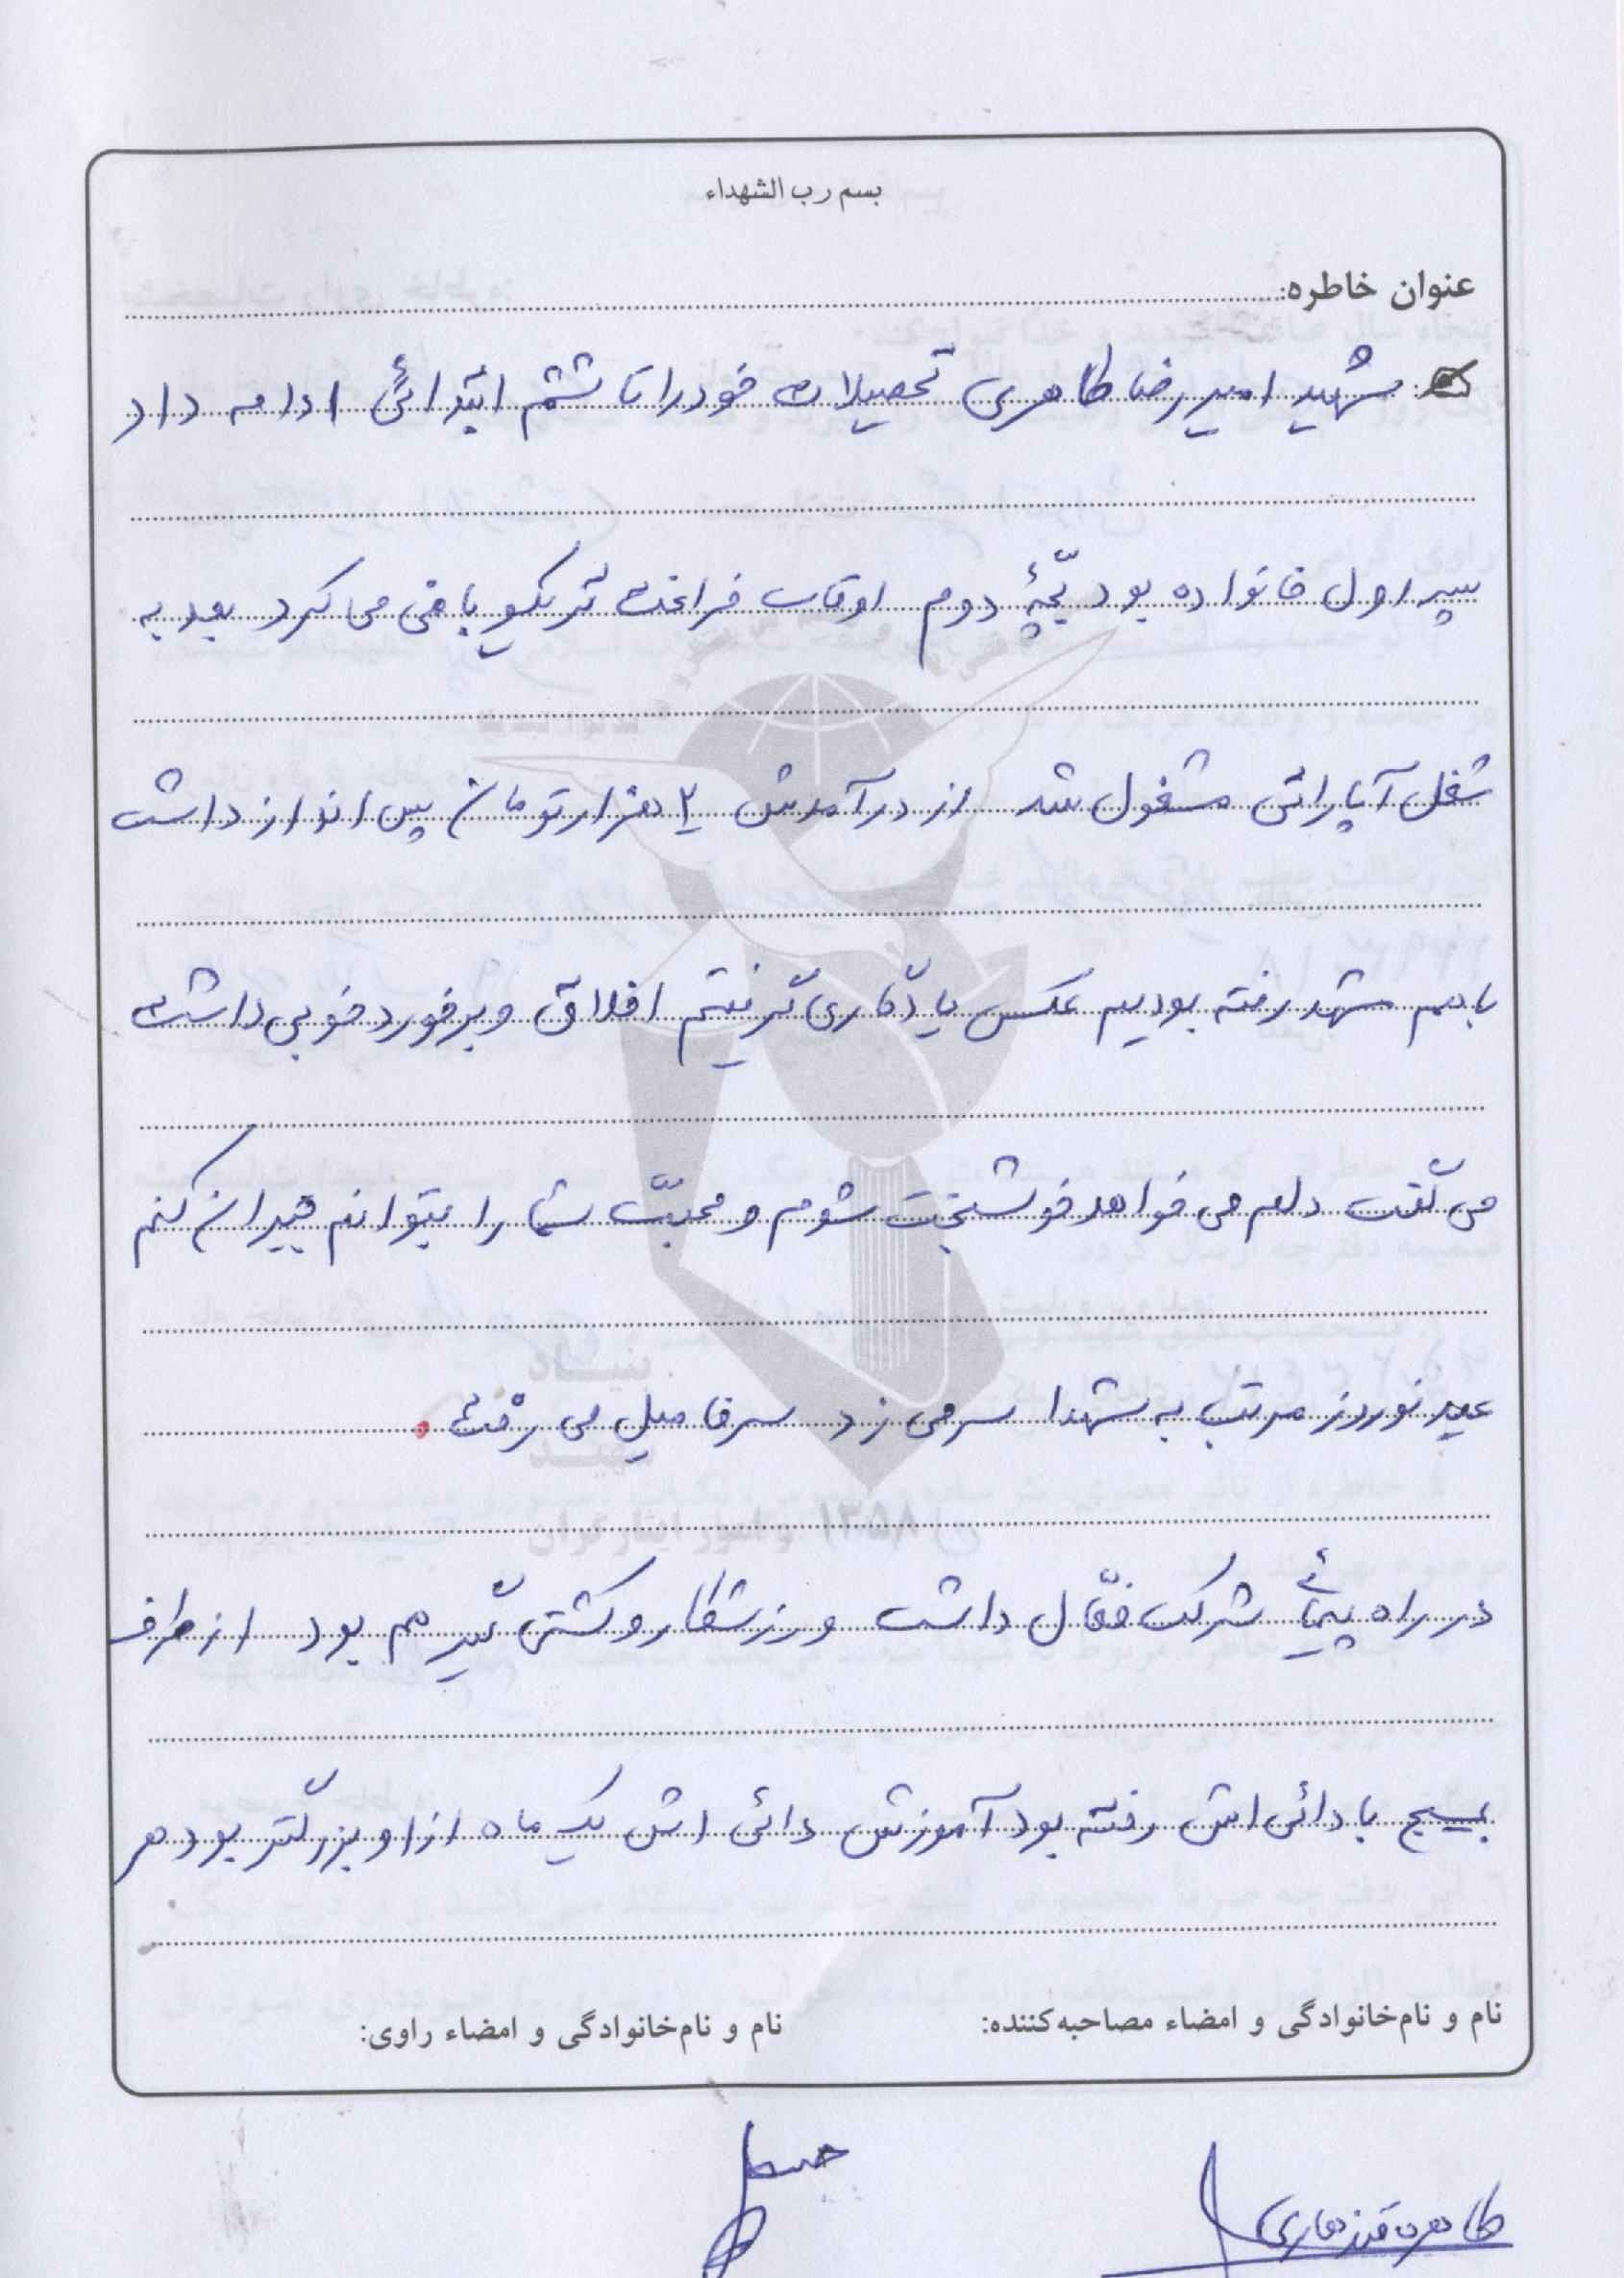 بسم رب الشهداء
عنوان خاطره:
شهید امیررضا طاهری تحصیلات خود را تا ششم ابتدائی ادامه داد
پسر اول خانواده بود بچّهٔ دوم اوقات فراغت تریکو بافی می کرد بعد به
شغل آپاراتی مشغول شد از درآمدش ۲ هزار تومان پس انداز داشت
باهم مشهد رفته بودیم عکس یادگاری گرفتیم اخلاق و برخورد خوبی داشت
می گفت دلم می خواهد خوشبخت شوم و محبّت شما را بتوانم جبران کنم
عید نوروز مرتب به شهدا سر می زد سر فامیل می رفت.
در راه پیمائی شرکت فعّال داشت ورزشکار و کشتی گیر هم بود از طرف
بسیج با دائی اش رفته بود آموزش دائی اش یک ماه از او بزرگتر بود هر
نام و نام‌خانوادگی و امضاء مصاحبه‌کننده: نام و نام‌خانوادگی و امضاء راوی:
بنیاد
شهید
و امور ایثارگران ۱۳۵۸
طاهره قندهاری